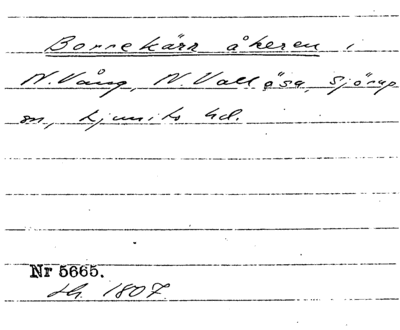 Borrekärr åkeren i
N. Vång, N. Vallösa, Sjörup
sn, Ljunits hd.
Nr 5665.
sk. 1807